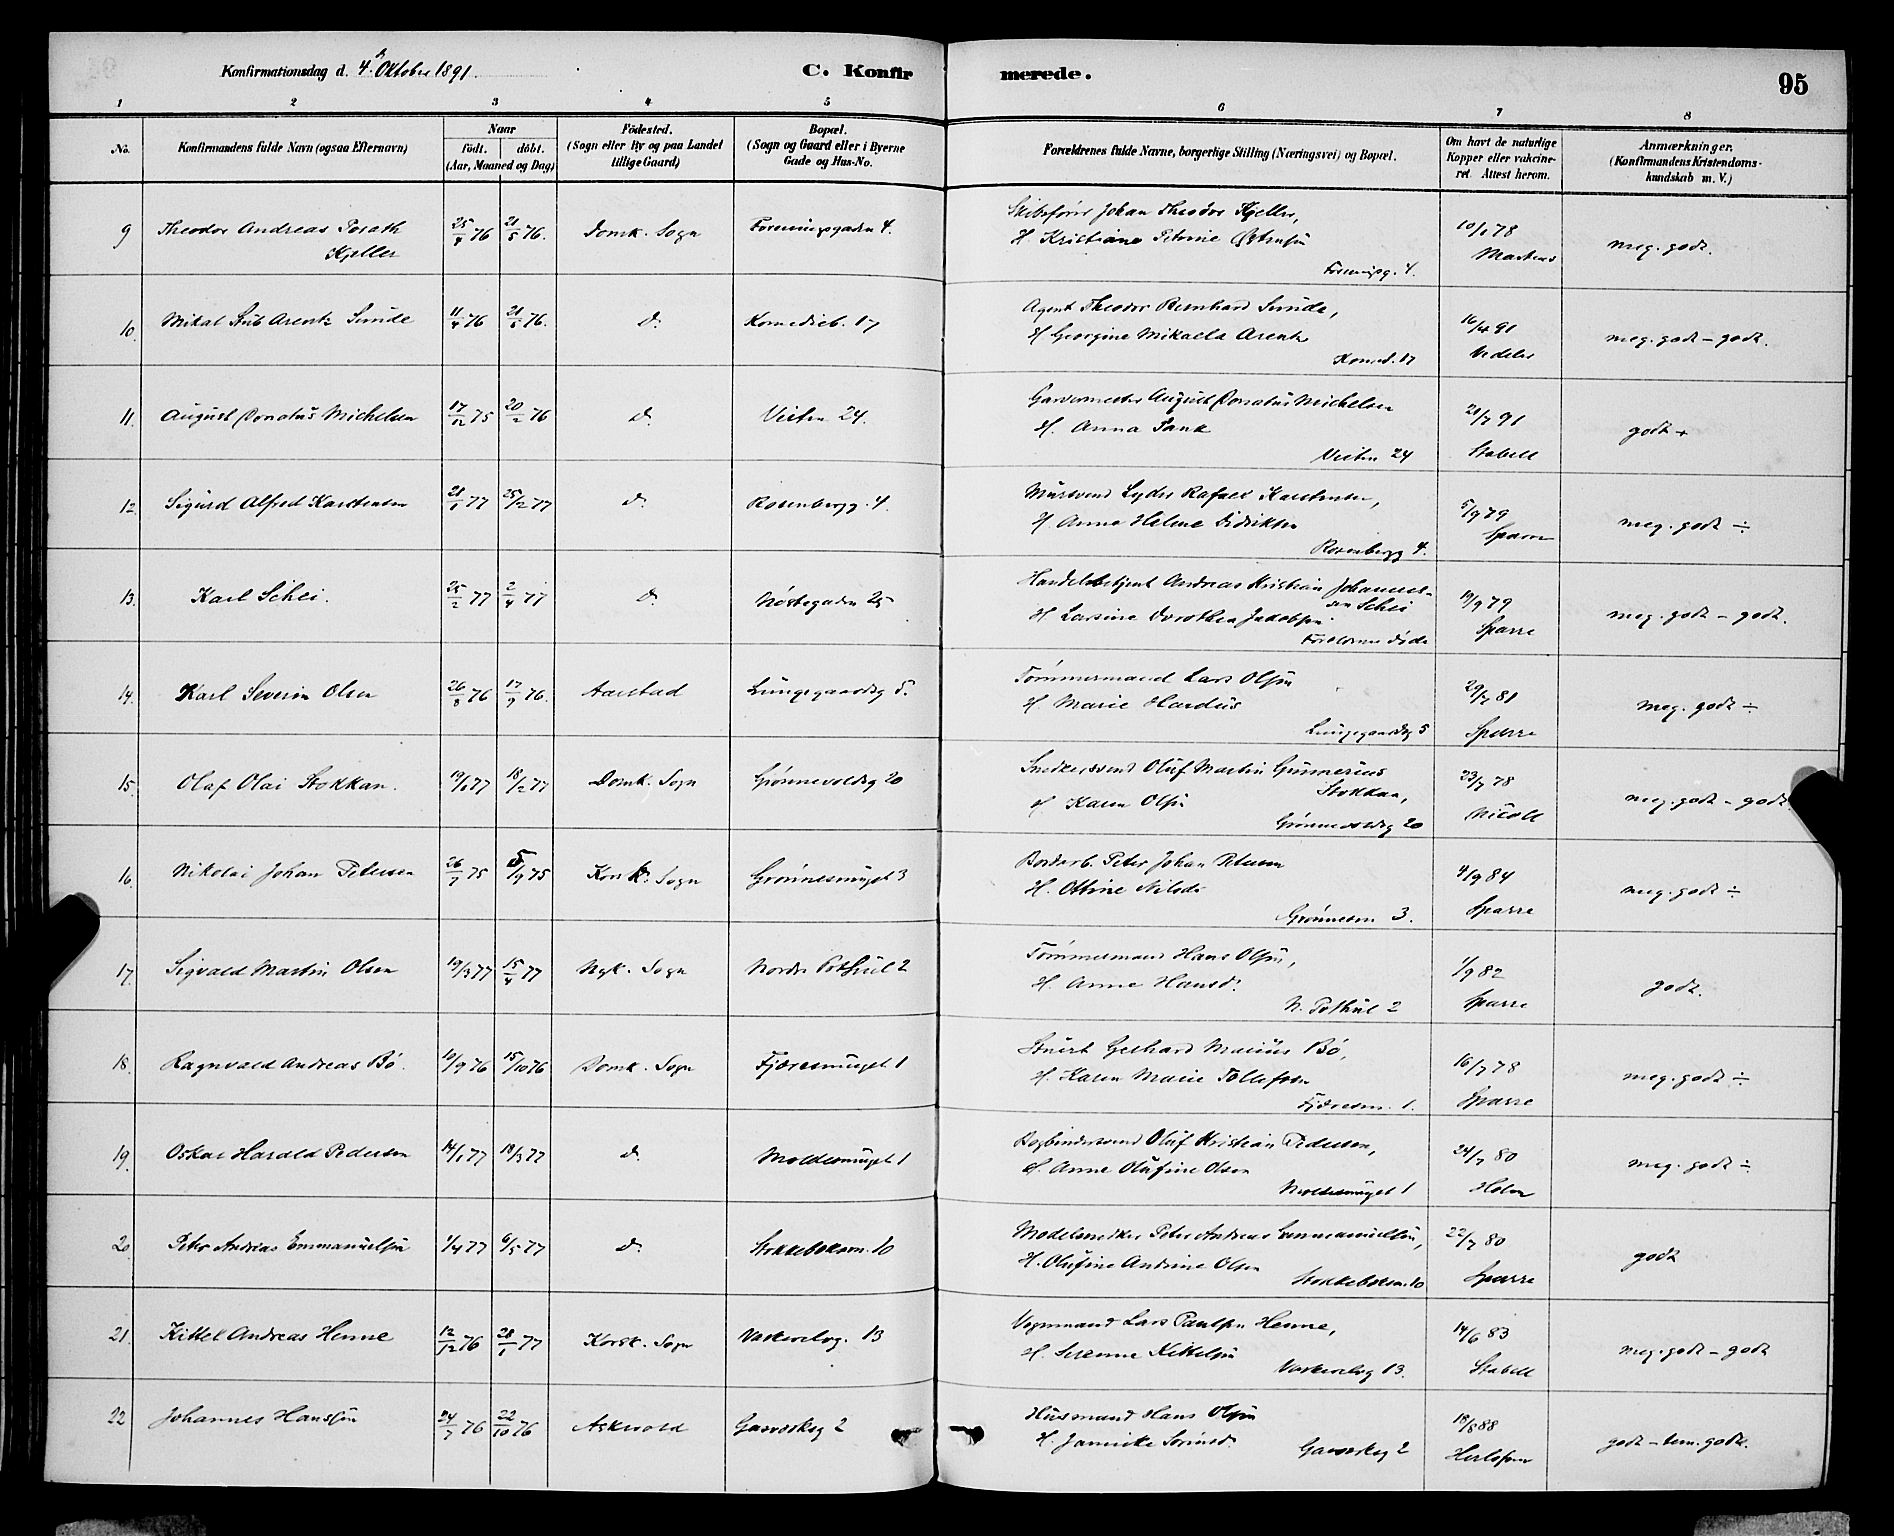 Konfirmationsdag d. 4d Oktober 1891.
C. Konfirmerede.
95
1 2 3 4 5 6 7 8
No.
Konfirmandens fulde Navn (ogsaa Efternavn)
Naar
födt. döbt.
(Aar, Maaned og Dag)
Födested.
(Sogn eller By og paa Landet
tillige Gaard)
Bopæl.
(Sogn og Gaard eller i Byerne
Gade og Hus-No.
Forældrenes fulde Navne, borgerlige Stilling (Næringsvei) og Bopæl.
Om havt de naturlige
Kopper eller vakcine-
ret. Attest herom.
Anmærkninger.
(Konfirmandens Kristendoms-
kundskab m. V.)
9 Theodor Andreas Porath 25/4 76 21/5 76. Domk. Sogn Foreningsgaden 4.
Kjeller
Skibsfører Johan Theodor Kjeller,
H. Kristiane Petrine
Foreningsg. 4.
10/1 78
Martens
meg. godt.
10. Mikal Stub Arentz Sunde 11/4 76 21/5 76. d. Komedieb. 17
Agent Theodor Bernhard Sunde,
H Georgine Mikaela Arentz
Komed. 17
16/4 91
Vedeler
meg. godt – godt.
11. August Donatus Michelsen 17/12 75 20/2 76 d. Veiten 24.
Garvermester August Donatus Michelsen
H. Anna Tank
Veiten 24
21/7 91
Stabell
godt +
12. Sigurd Alfred Karstensen 21/1 77 25/2 77 d. Rosenbergg. 4.
Mursvend Lyder Rafael Karstensen,
H Anna Helene Didriksen
Rosenbergg 4.
5/9 79
Sparre
meg. godt ÷
13. Karl Schei. 25/2 77 2/4 77 d. Nøstegaden 25
Handelsbetjent Andreas Kristian Johannes-
sen Schei
H Larsine Dorothea Jakobsen
Forældrene døde
19/9 79
Sparre
meg. godt – godt.
14. Karl Severin Olsen 26/8 76 17/9 76. Aarstad Lungegaardsg 5.
Tømmermand Lars Olsen
H. Marie Hardus
Lungegaardsg 5
29/7 81
Sparre
meg. godt ÷
15. Olaf Olai Stokkan. 19/1 77 18/2 77 Domk. Sogn Grønnevoldsg 20
Snedkersvend Oluf Martin Gunnerius
Stokkan,
H Karen Olsen
Grønnevoldsg 20
23/7 78
Nicoll
meg. godt – godt
16. Nikolai Johan Petersen 26/7 75 5/9 75 Korsk. Sogn Grønnesmuget 3
Bordarb. Peter Johan Petersen
H. Ottine Nilsdr
Grønnesm 3.
4/9 84
Sparre
meg. godt ÷
17. Sigvald Martin Olsen 19/3 77 15/4 77 Nyk. Sogn Nordre Pothul 2
Tømmermand Hans Olsen,
H. Anne Hansd.
N. Pothul 2
1/9 82
Sparre
godt.
18. Ragnvald Andreas Bö. 10/9 76 15/10 76 Domk. Sogn Fjæresmuget 1
Stuert Gerhard Marius Bö,
H. Karen Marie Tollefsen
Fjæresm. 1.
16/7 78
Sparre
meg. godt ÷
19. Oskar Harald Pedersen 14/1 77 18/3 77 d. Moldesmuget 1
Bogbindersvend Oluf Kristian Pedersen,
H Anne Olufine Olsen
Moldesmuget 1
24/7 80
Holm
meg. godt ÷
20. Peter Andreas Emmanuelsen 1/4 77 6/5 77 d. Stokkeboksm. 10
Modelsnedker Peter Andreas Emmanuelsen,
H. Olufine Andrine Olsen
Stokkeboksm. 10
22/7 80
Sparre
godt
21. Kittel Andreas Henne 12/12 76 28/1 77 Korsk. Sogn Vaskerelvg. 13
Vognmand Lars Paulsen Henne,
H. Serenne Kittelsen
Vaskerelvg 13.
14/6 83
Stabell
meg. godt – godt
22 Johannes Hanssen 24/7 76 22/10 76 Askvold Gasverksg 2
Husmand Hans Olsen
H. Jannicke Sørensd.
Gasverksg 2
18/8 88
godt – tem. godt.